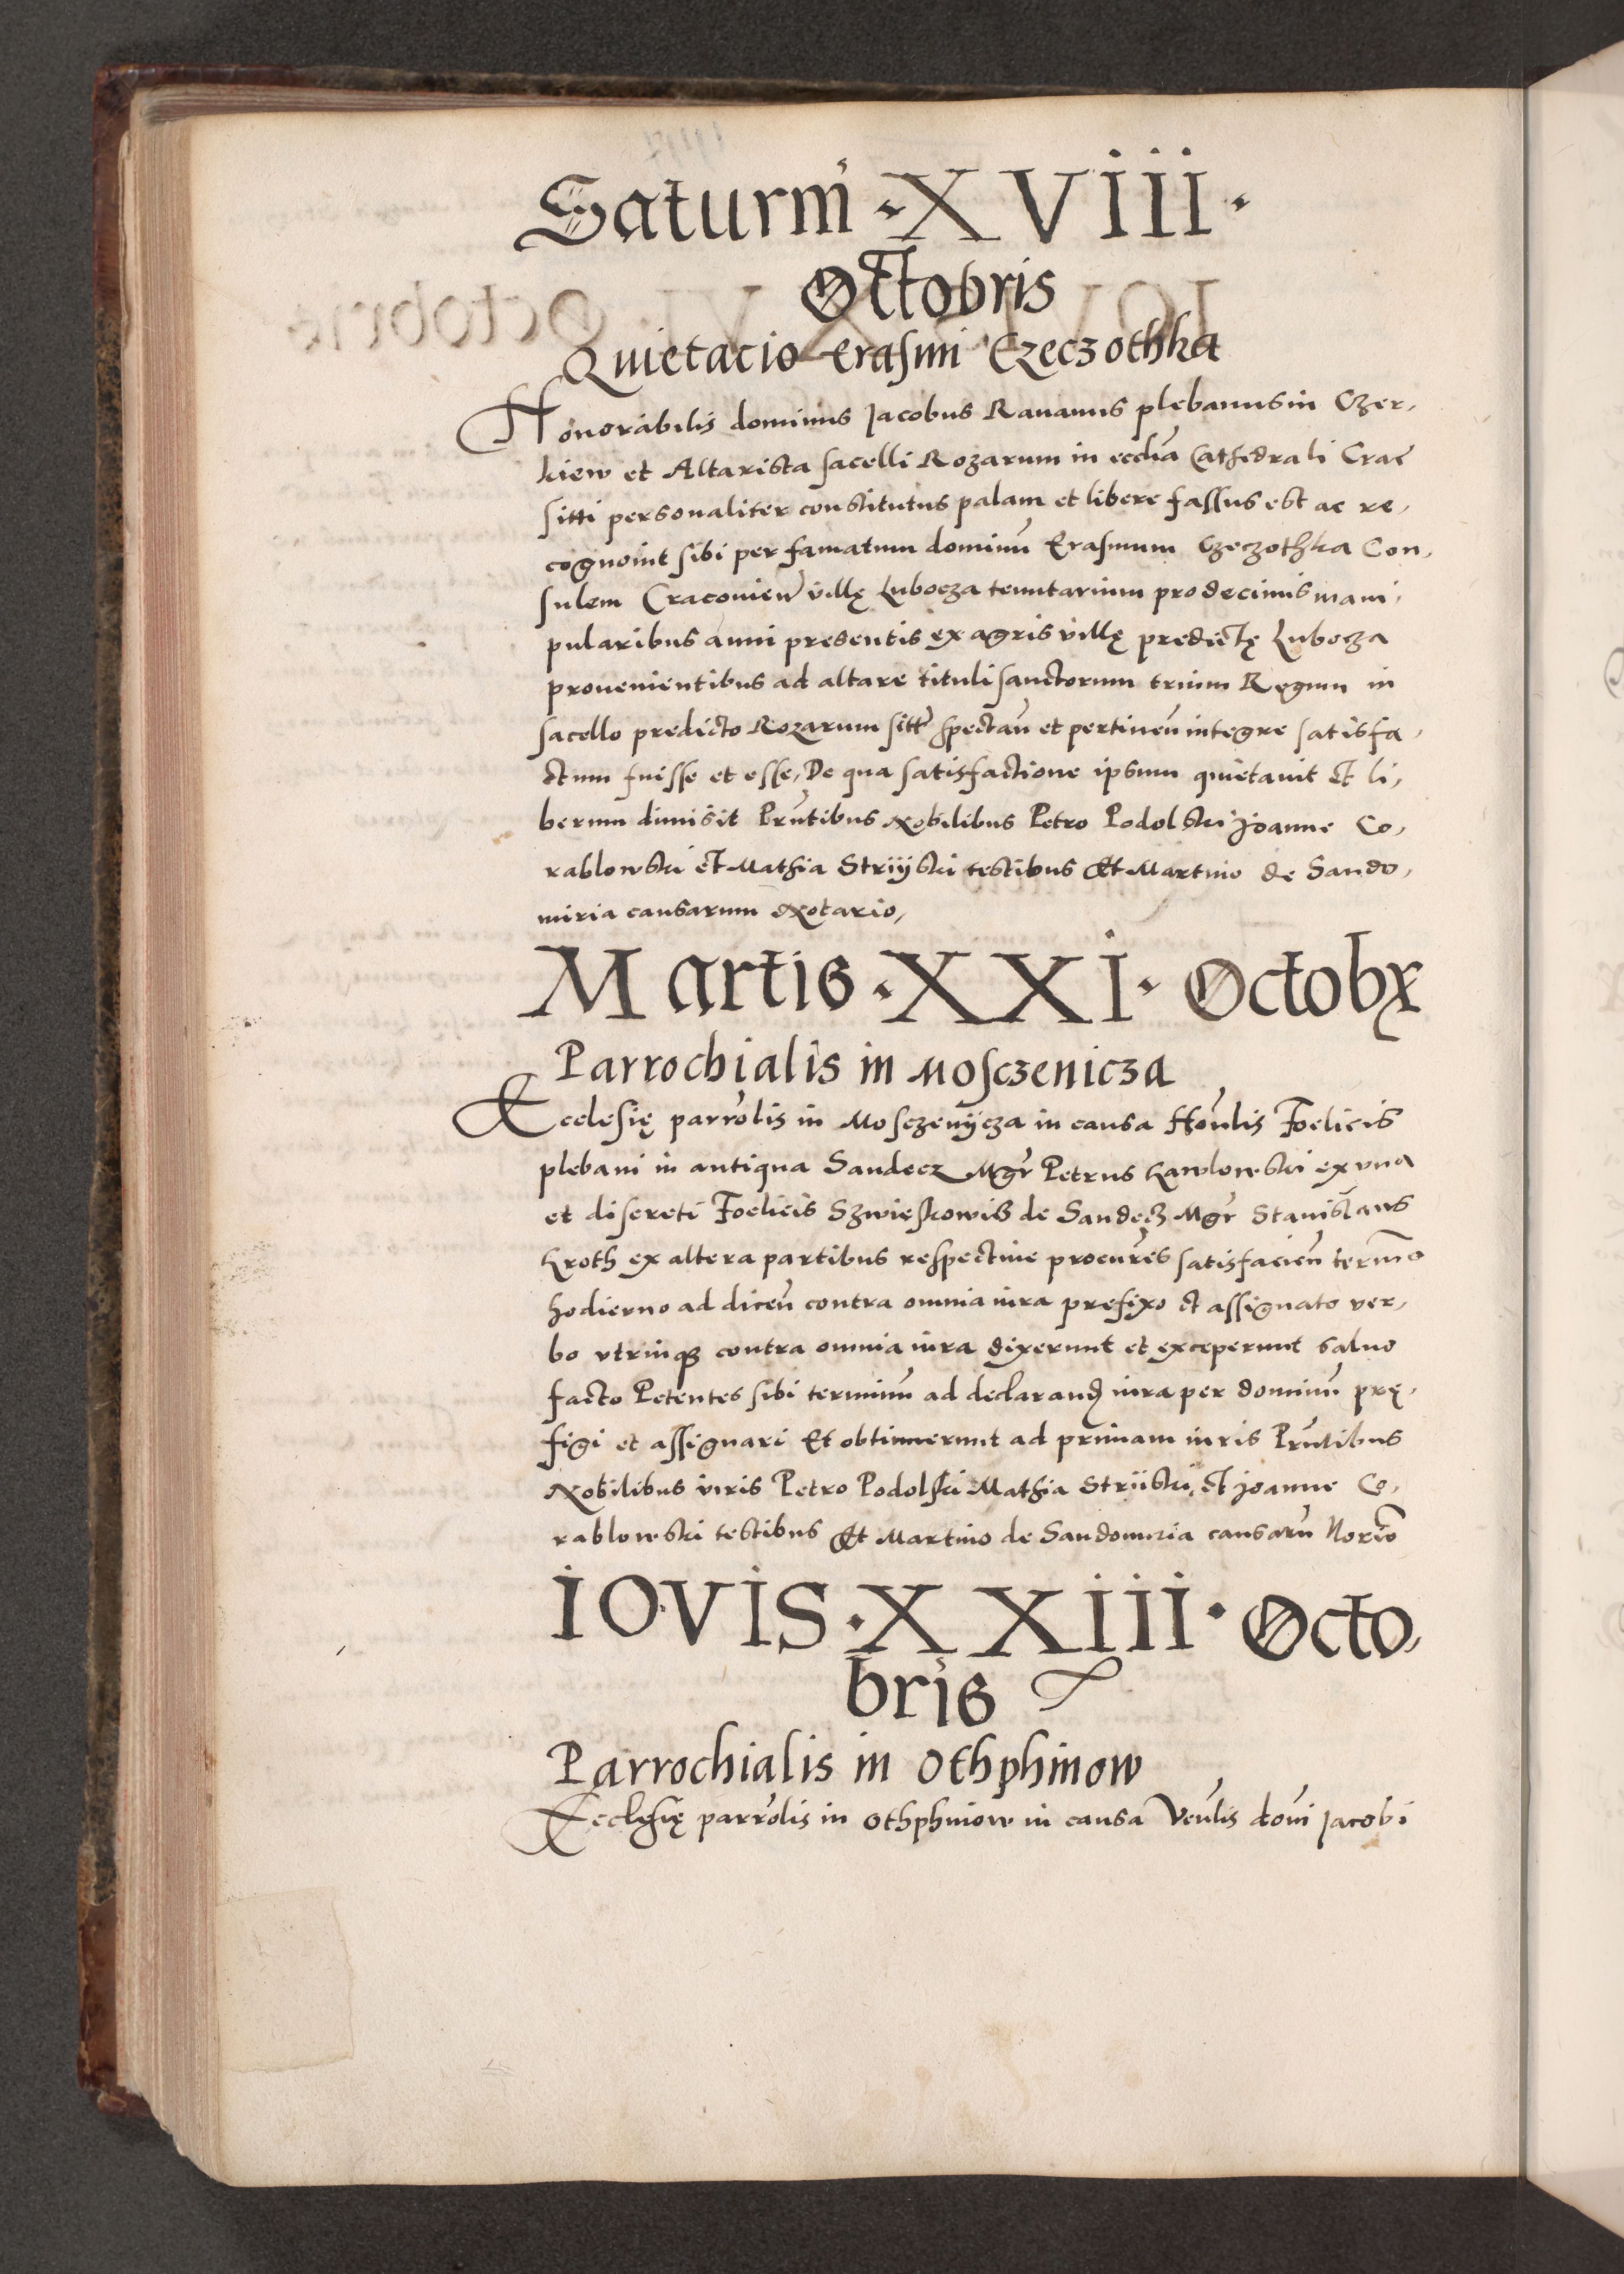 Saturni · XVIII ·
Octobris
Quietacio Erasmi Czeczothka
Honorabilis dominus Jacobus Rauanus plebanus in Czer,
kiew et Altarista sacelli Rozarum in eccliã Cathedrali Crac̃
sitti personaliter constitutus palam et libere fassus est ac re,
cognouit sibi per famatum dominũ Erasmum Czeczothka Con,
sulem Cracovien̄ villę Lubocza tenutarium pro decimis mani,
pularibus anni presentis ex agris villę predictę Lubocza
prouenientibus ad altare tituli sanctorum trium Regum in
sacello predicto Rozarum sitt̃ spectan̄ et pertinen̄ integre satisfa,
ctum fuisse et esse, De qua satisfactione ipsum quietauit et li,
berum dimisit Prñtibus Nobilibus Petro Podolski Joanne Co,
rablowski et Mathia Strijski testibus Et Martino de Sando,
miria causarum Notario,
Martis · XXI · Octobr
Parrochialis in Mosczenicza
Ecclesię parrõlis in Mosczenÿcza in causa Hoñlis Foelicis
plebani in antiqua Sandecz Mgr̃ Petrus Kawlowski ex vna
et discreti Foelicis Szwięskowicz de Sandecz Mgr̃ Stanislaus
Kroth ex altera partibus respectiue procur̃es satisfacien̄ termĩo
hodierno ad dicen̄ contra omnia iura prefixo et assignato ver,
bo vtrinqꝫ contra omnia iura dixerunt et exceperunt saluo
facto Petentes sibi terminũ ad declarand iura per dominũ prę,
figi et assignari Et obtinuerunt ad primam iuris Prñtibus
Nobilibus viris Petro Podolski Mathia Striiski, et Joanne Co,
rablowski testibus Et Martino de Sandomiria causarũ Norĩo
IOVIS · XXIII · Octo,
bris
Parrochialis in Othphinow
Ecclesię parrõlis in Othphinow in causa Veñlis doñi Jacobi